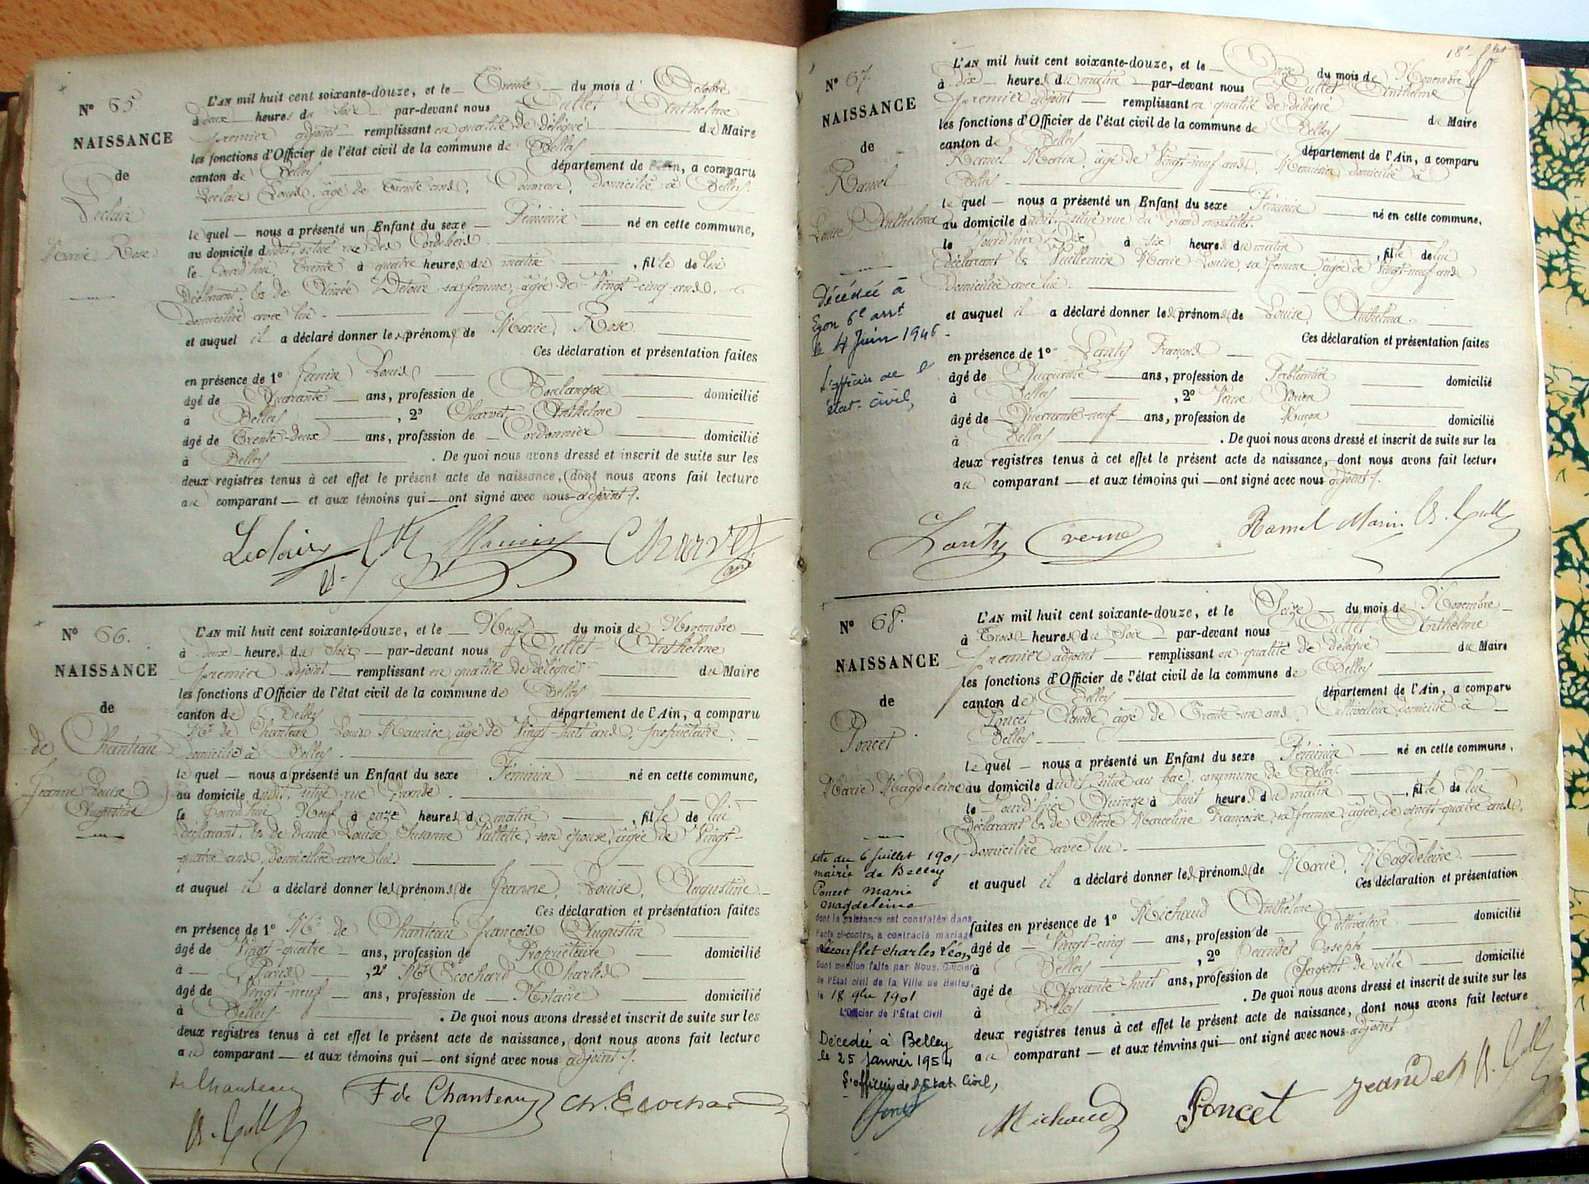 N° 65.
NAISSANCE
de
Leclair
Marie Rose
L'AN mil huit cent soixante-douze, et le Trente du mois d'Octobre
à deux heures du soir par-devant nous Cullet Anthelme
premier adjoint remplissant en qualité de délégué du Maire
les fonctions d'Officier de l'état civil de la commune de Belley
canton de Belley département de l'Ain, a comparu
Leclair Louis, âgé de Trente ans, domicilié à Belley
le quel — nous a présenté un Enfant du sexe Féminin né en cette commune,
au domicile dudit, situé rue des Cordeliers
le jourd'hui Trente à quatre heures du matin, fille de lui
déclarant, & de sa femme, âgée de Vingt-cinq ans,
domiciliée avec lui.
et auquel il a déclaré donner les prénoms de Marie, Rose
Ces déclaration et présentation faites
en présence de 1° Louis
âgé de Quarante ans, profession de Boulanger domicilié
à Belley, 2° Charvet Anthelme
âgé de Trente-deux ans, profession de Cordonnier domicilié
à Belley. De quoi nous avons dressé et inscrit de suite sur les
deux registres tenus à cet effet le présent acte de naissance, dont nous avons fait lecture
au comparant — et aux témoins qui — ont signé avec nous adjoint.
Leclair Charvet
N° 66.
NAISSANCE
de
de Chanteau
Jeanne Louise
Augustine
L'AN mil huit cent soixante-douze, et le Neuf du mois de Novembre
à deux heures du soir par-devant nous Cullet Anthelme
premier adjoint remplissant en qualité de délégué du Maire
les fonctions d'Officier de l'état civil de la commune de Belley
canton de Belley département de l'Ain, a comparu
Mr de Chanteau Louis Maurice, âgé de Vingt-huit ans, propriétaire,
domicilié à Belley
le quel — nous a présenté un Enfant du sexe Féminin né en cette commune,
au domicile dudit, situé rue
le jourd'hui Neuf à onze heures du matin, fille de lui
déclarant, & de dame Louise Susanne Vallette, son épouse, âgée de Vingt-
quatre ans, domiciliée avec lui
et auquel il a déclaré donner les prénoms de Jeanne, Louise, Augustine
Ces déclaration et présentation faites
en présence de 1° Mr de Chanteau François Augustin
âgé de Vingt-quatre ans, profession de Propriétaire domicilié
à Paris, 2° Mr Ecochard Charles
âgé de Vingt-neuf ans, profession de Notaire domicilié
à Belley. De quoi nous avons dressé et inscrit de suite sur les
deux registres tenus à cet effet le présent acte de naissance, dont nous avons fait lecture
au comparant — et aux témoins qui — ont signé avec nous adjoint.
de Chanteau F de Chanteau Ch. Ecochard
N° 67.
NAISSANCE
de
Ramel
Louise Anthelma
L'AN mil huit cent soixante-douze, et le Onze du mois de Novembre
à dix heures du matin par-devant nous Cullet Anthelme
premier adjoint remplissant en qualité de délégué
les fonctions d'Officier de l'état civil de la commune de Belley du Maire
canton de Belley département de l'Ain, a comparu
Ramel Marin, âgé de Vingt-neuf ans, Menuisier domicilié à
Belley
le quel — nous a présenté un Enfant du sexe Féminin né en cette commune,
au domicile dudit, situé rue du
le jourd'hui à six heures du matin, fille de lui
déclarant & Vuillermin Marie Louise, sa femme, âgée de Vingt-neuf ans
domiciliée avec lui.
et auquel il a déclaré donner les prénoms de Louise, Anthelma
Ces déclaration et présentation faites
en présence de 1° Lanty François
âgé de Quarante ans, profession de Ferblantier domicilié
à Belley, 2°
âgé de Quarante-neuf ans, profession de Maçon domicilié
à Belley. De quoi nous avons dressé et inscrit de suite sur les
deux registres tenus à cet effet le présent acte de naissance, dont nous avons fait lecture
au comparant — et aux témoins qui — ont signé avec nous adjoint.
Décédée à
Lyon 6e arrt
le 4 Juin 1946
L'officier de l'
état-civil,
Lanty Ramel Marin
N° 68.
NAISSANCE
de
Poncet
Marie Magdeleine
L'AN mil huit cent soixante-douze, et le Seize du mois de Novembre
à Trois heures du soir par-devant nous Cullet Anthelme
premier adjoint remplissant en qualité de délégué du Maire
les fonctions d'Officier de l'état civil de la commune de Belley
canton de Belley département de l'Ain, a comparu
Poncet Claude âgé de Trente-un ans Cultivateur domicilié à
Belley
le quel — nous a présenté un Enfant du sexe Féminin né en cette commune,
au domicile dudit, situé au bac, commune de Belley
le jourd'hier Quinze à huit heures du matin, fille de lui
déclarant & de Marceline Françoise, sa femme, âgée de vingt-quatre ans,
domiciliée avec lui.
et auquel il a déclaré donner les prénoms de Marie, Magdeleine
Ces déclaration et présentation
faites en présence de 1° Michaud Anthelme domicilié
âgé de Vingt-cinq ans, profession de Cultivateur
à Belley, 2° Jeandet Joseph domicilié
âgé de Quarante-huit ans, profession de Sergent de ville
à Belley. De quoi nous avons dressé et inscrit de suite sur les
deux registres tenus à cet effet le présent acte de naissance, dont nous avons fait lecture
au comparant — et aux témoins qui — ont signé avec nous adjoint
acte du 6 Juillet 1901
mairie de Belley
Poncet Marie
Magdeleine
dont la naissance est constatée dans
l'acte ci-contre, a contracté mariage
Ecoufflet Charles Léon
Dont mention faite par Nous, Officier
de l'État civil de la Ville de Belley,
le 18 9bre 1901
L'Officier de l'État Civil
Décédée à Belley
le 25 Janvier 1954
L'officier de l'Etat Civil,
Michaud Poncet Jeandet